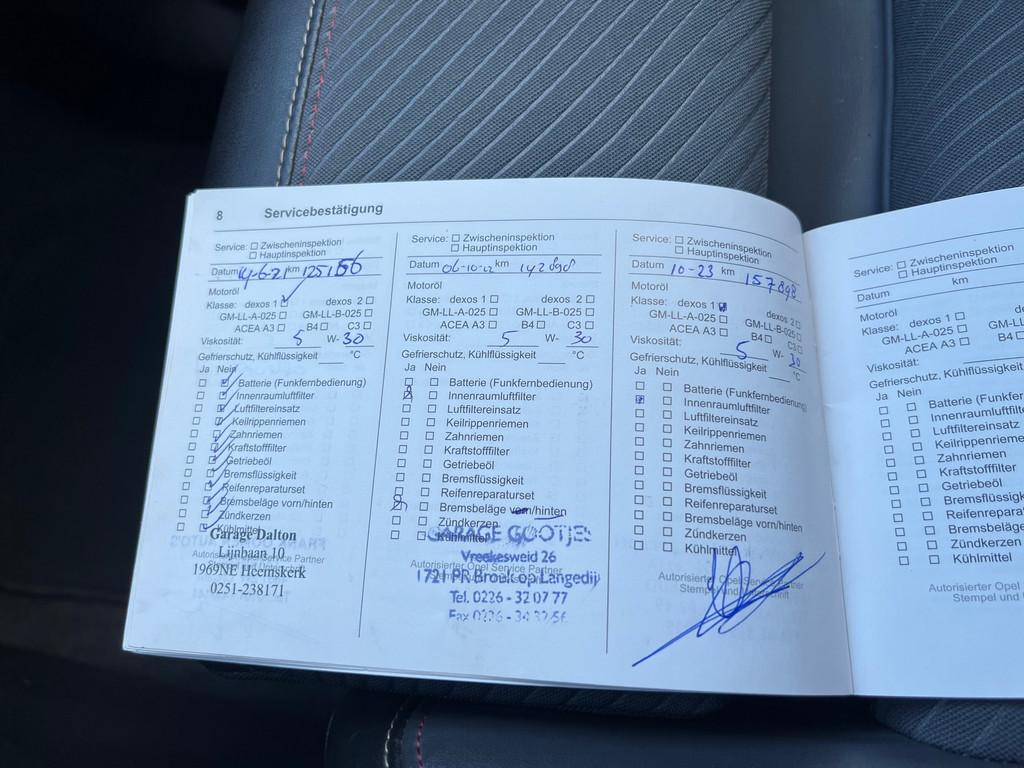 8 Servicebestätigung
Service: ☐ Zwischeninspektion
☐ Hauptinspektion
Datum 14-6-21 km 125166
Motoröl
Klasse: dexos 1 ☑ dexos 2 ☐
GM-LL-A-025 ☐ GM-LL-B-025 ☐
ACEA A3 ☐ B4 ☐ C3 ☐
Viskosität: 5 W- 30
Gefrierschutz, Kühlflüssigkeit °C
Ja Nein
Batterie (Funkfernbedienung)
Innenraumluftfilter
Luftfiltereinsatz
Keilrippenriemen
Zahnriemen
Kraftstofffilter
Getriebeöl
Bremsflüssigkeit
Reifenreparaturset
Bremsbeläge vorn/hinten
Zündkerzen
Kühlmittel
Garage Dalton
Lijnbaan 10
1969 NE Heemskerk
0251-238171
Service: ☐ Zwischeninspektion
☐ Hauptinspektion
Datum 06-10-22 km 142898
Motoröl
Klasse: dexos 1 ☐ dexos 2 ☐
GM-LL-A-025 ☐ GM-LL-B-025 ☐
ACEA A3 ☐ B4 ☐ C3 ☐
Viskosität: 5 W- 30
Gefrierschutz, Kühlflüssigkeit °C
Ja Nein
Batterie (Funkfernbedienung)
Innenraumluftfilter
Luftfiltereinsatz
Keilrippenriemen
Zahnriemen
Kraftstofffilter
Getriebeöl
Bremsflüssigkeit
Reifenreparaturset
Bremsbeläge vorn/hinten
Zündkerzen
Kühlmittel
GARAGE GOOTJES
Vroekesweid 26
Autorisierter Opel Service Partner
1721 PR Broek op Langedijk
Tel. 0226 - 32 07 77
Fax 0226 - 34 32 56
Service: ☐ Zwischeninspektion
☐ Hauptinspektion
Datum 10-23 km 157898
Motoröl
Klasse: dexos 1 ☑ dexos 2 ☐
GM-LL-A-025 ☐ GM-LL-B-025 ☐
ACEA A3 ☐ B4 ☐ C3 ☐
Viskosität: 5 W- 30
Gefrierschutz, Kühlflüssigkeit °C
Ja Nein
Batterie (Funkfernbedienung)
Innenraumluftfilter
Luftfiltereinsatz
Keilrippenriemen
Zahnriemen
Kraftstofffilter
Getriebeöl
Bremsflüssigkeit
Reifenreparaturset
Bremsbeläge vorn/hinten
Zündkerzen
Kühlmittel
Autorisierter Opel Service Partner
Stempel und Unterschrift
Service: ☐ Zwischeninspektion
☐ Hauptinspektion
Datum km
Motoröl
Klasse: dexos 1 ☐
GM-LL-A-025 ☐ GM-L
ACEA A3 ☐ B4
Viskosität:
Gefrierschutz, Kühlflüssigkeit
Ja Nein
Batterie (Funkfe
Innenraumluftfilte
Luftfiltereinsatz
Keilrippenrieme
Zahnriemen
Kraftstofffilter
Getriebeöl
Bremsflüssigk
Reifenreparat
Bremsbeläge
Zündkerzen
Kühlmittel
Autorisierter Opel
Stempel und